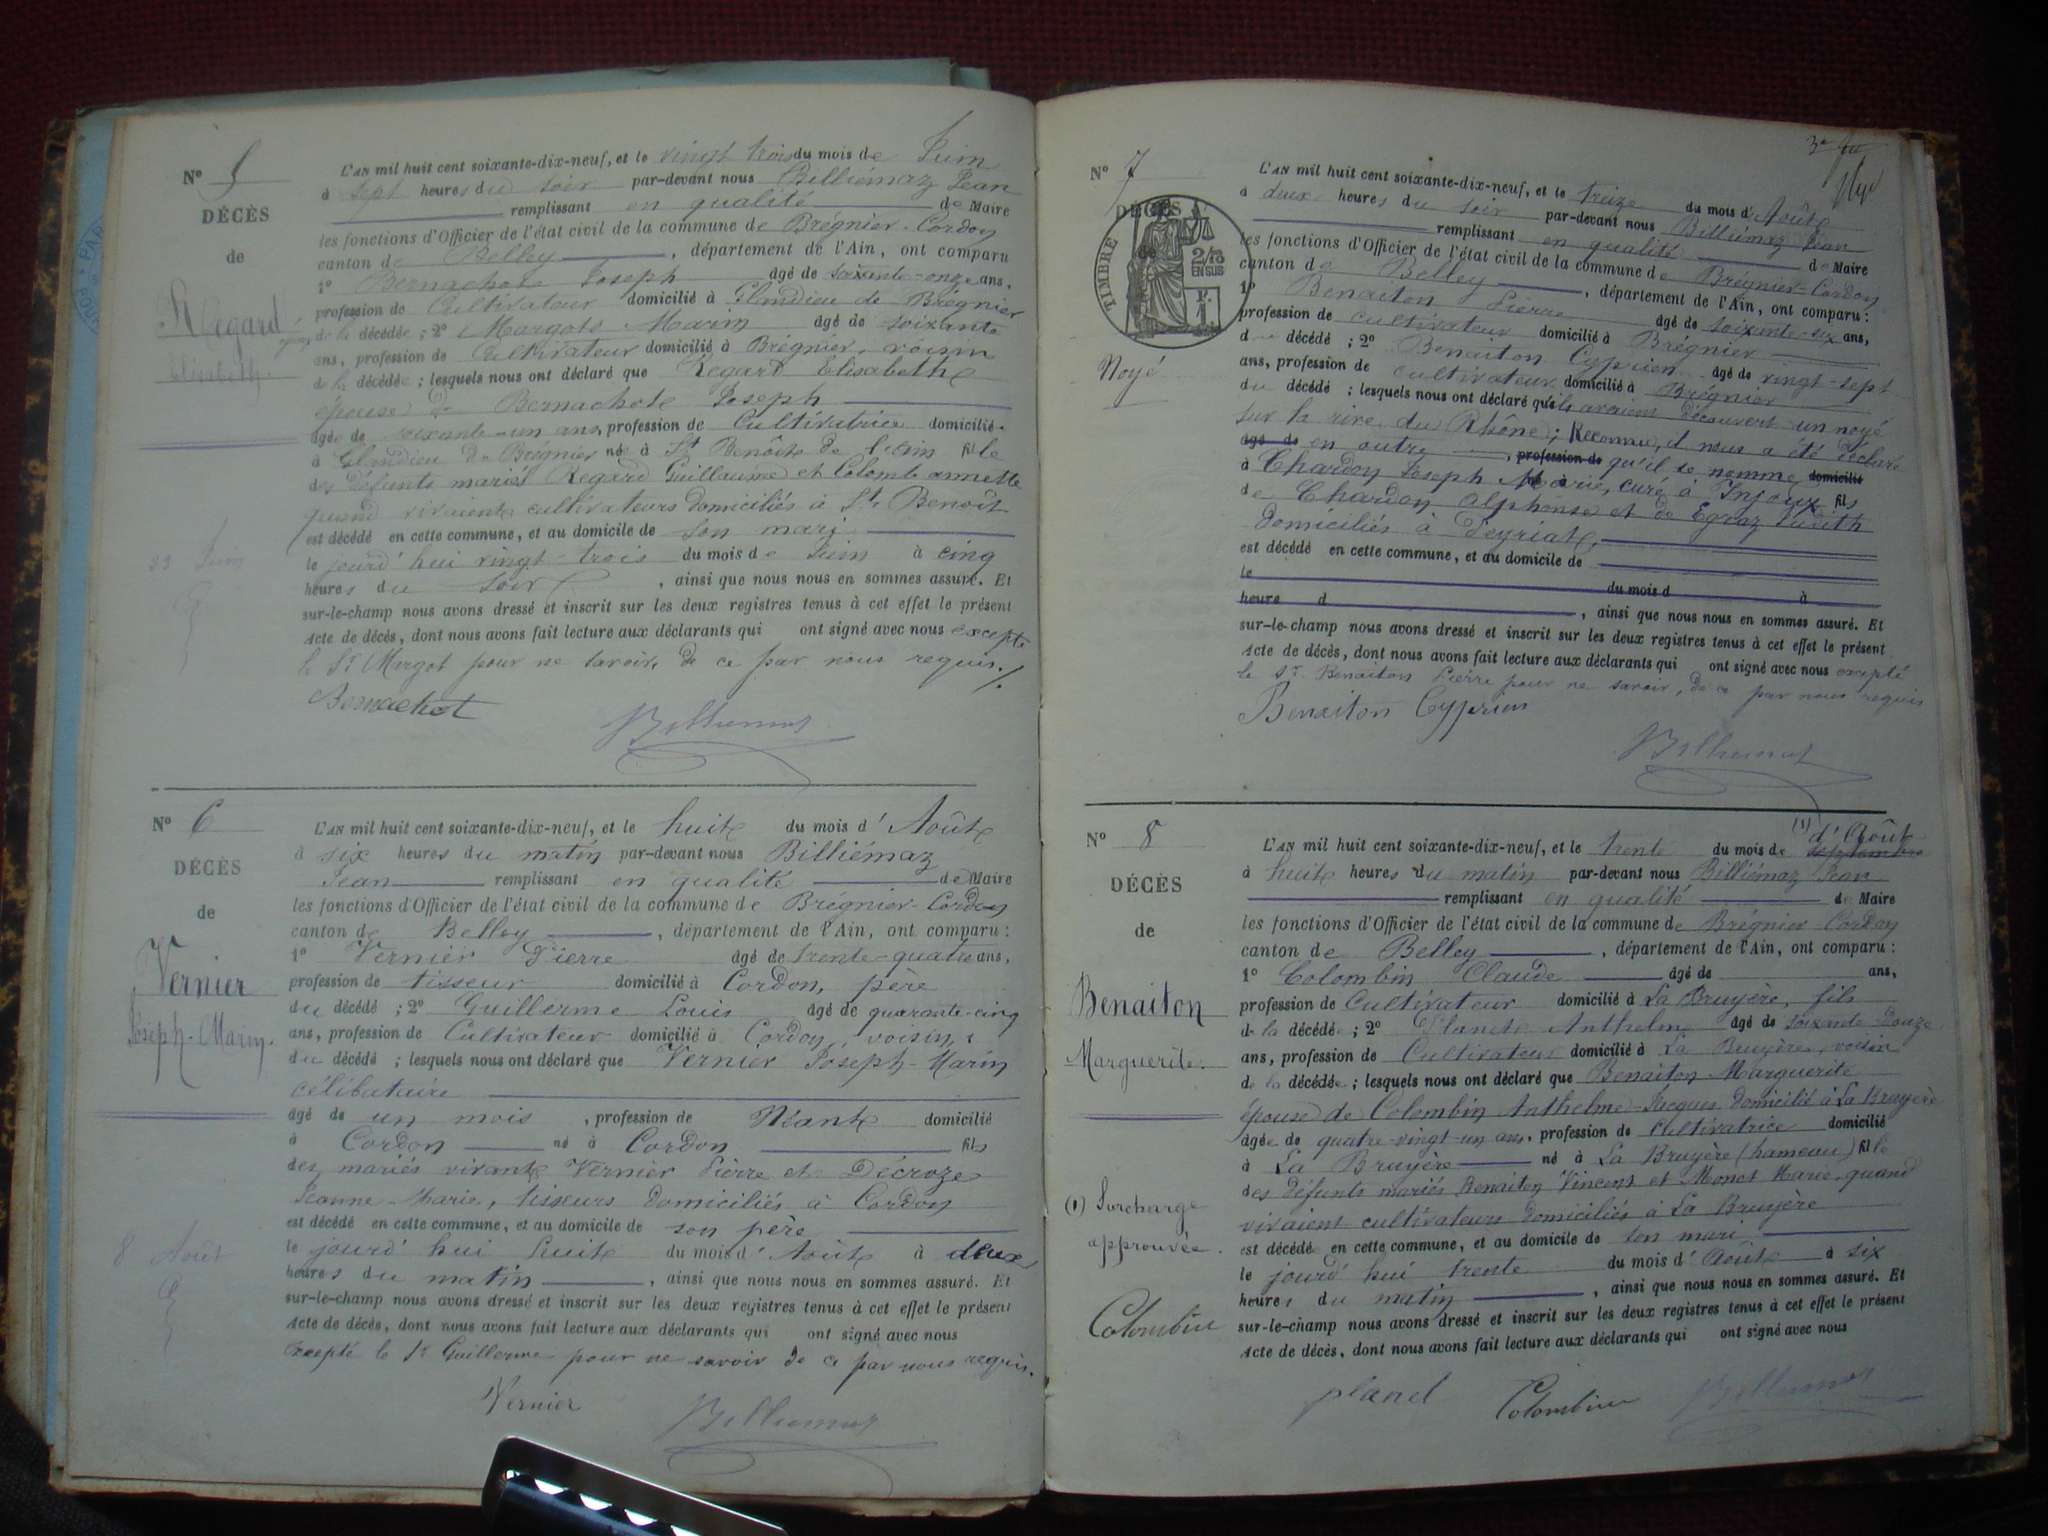 N° 5
DÉCÈS
de
Regard
épouse
Elisabeth.
23 Juin
L'AN mil huit cent soixante-dix-neuf, et le vingt trois du mois de Juin
à sept heures du soir par-devant nous Billiémaz Jean
remplissant en qualité de Maire
les fonctions d'Officier de l'état civil de la commune de Brégnier-Cordon
canton de Belley, département de l'Ain, ont comparu
1° Bernachot Joseph âgé de soixante-onze ans,
profession de Cultivateur domicilié à Glandieu de Brégnier
de la décédée ; 2° Margot Marin âgé de soixante
ans, profession de Cultivateur domicilié à Brégnier, voisin
de la décédée ; lesquels nous ont déclaré que Regard Elisabeth
épouse de Bernachot Joseph
âgée de soixante-un ans, profession de Cultivatrice domicilié
à Glandieu de Brégnier né à St Benoît de l'ain fille
des défunts mariés Regard Guillaume et Colomb annette
quand vivaient cultivateurs domiciliés à St Benoît
est décédé en cette commune, et au domicile de son mari
le jourd'hui vingt-trois du mois de Juin à cinq
heures du soir, ainsi que nous nous en sommes assuré. Et
sur-le-champ nous avons dressé et inscrit sur les deux registres tenus à cet effet le présent
Acte de décès, dont nous avons fait lecture aux déclarants qui ont signé avec nous excepté
le Sr Margot pour ne savoir, de ce par nous requis./.
Bernachot
JBilliemaz
N° 6
DÉCÈS
de
Vernier
Joseph-Marin.
8 Août
L'AN mil huit cent soixante-dix-neuf, et le huit du mois d'Août
à six heures du matin par-devant nous Billiémaz
Jean remplissant en qualité de Maire
les fonctions d'Officier de l'état civil de la commune de Brégnier-Cordon
canton de Belley, département de l'Ain, ont comparu :
1° Vernier Pierre âgé de trente-quatre ans,
profession de tisseur domicilié à Cordon, père
du décédé ; 2° Guillerme Louis âgé de quarante-cinq
ans, profession de Cultivateur domicilié à Cordon, voisin
du décédé ; lesquels nous ont déclaré que Vernier Joseph-Marin
célibataire
âgé de un mois, profession de Néant domicilié
à Cordon né à Cordon fils
des mariés vivants Vernier Pierre et Décroze
Jeanne-Marie, tisseurs domiciliés à Cordon
est décédé en cette commune, et au domicile de son père
le jourd'hui huit du mois d'Août à deux
heures du matin, ainsi que nous nous en sommes assuré. Et
sur-le-champ nous avons dressé et inscrit sur les deux registres tenus à cet effet le présent
Acte de décès, dont nous avons fait lecture aux déclarants qui ont signé avec nous
excepté le Sr Guillerme pour ne savoir de ce par nous requis.
Vernier
JBilliemaz
3e
N° 7
DÉCÈS
de
TIMBRE
2/10
EN SUS
Noyé
L'AN mil huit cent soixante-dix-neuf, et le treize du mois d'Août
à deux heures du soir par-devant nous Billiémaz Jean
remplissant en qualité de Maire
les fonctions d'Officier de l'état civil de la commune de Brégnier-Cordon
canton de Belley, département de l'Ain, ont comparu :
1° Benaiton Pierre âgé de soixante-six ans,
profession de cultivateur domicilié à Brégnier
d décédé ; 2° Benaiton Cyprien âgé de vingt-sept
ans, profession de cultivateur domicilié à Brégnier
du décédé ; lesquels nous ont déclaré qu'ils avaient découvert un noyé
sur la rive du Rhône ; Reconnu, il nous a été déclaré
âgé de en outre, profession de qu'il se nomme domicilié
à Chardon Joseph Marie, curé à Injoux fils
de Chardon alphonse et de Egraz Judith
domiciliés à Peyriat,
est décédé en cette commune, et au domicile de
le du mois d à
heure d, ainsi que nous nous en sommes assuré. Et
sur-le-champ nous avons dressé et inscrit sur les deux registres tenus à cet effet le présent
Acte de décès, dont nous avons fait lecture aux déclarants qui ont signé avec nous excepté
le Sr Benaiton Pierre pour ne savoir, de ce par nous requis
Benaiton Cyprien
JBilliemaz
N° 8
DÉCÈS
de
Benaiton
Marguerite.
(1) Surcharge
approuvée.
Colombin
(1) d'Août
L'AN mil huit cent soixante-dix-neuf, et le trente du mois de septembre
à huit heures du matin par-devant nous Billiémaz Jean
remplissant en qualité de Maire
les fonctions d'Officier de l'état civil de la commune de Brégnier-Cordon
canton de Belley, département de l'Ain, ont comparu :
1° Colombin Claude âgé de ans,
profession de Cultivateur domicilié à La Bruyère, fils
de la décédée ; 2° Planet Anthelme âgé de soixante-douze
ans, profession de Cultivateur domicilié à La Bruyère, voisin
de la décédée ; lesquels nous ont déclaré que Benaiton Marguerite
épouse de Colombin Anthelme-Jacques domicilié à La Bruyère
âgée de quatre-vingt-un ans, profession de cultivatrice domicilié
à La Bruyère né à La Bruyère (hameau) fille
des défunts mariés Benaiton Vincent et Monet Marie quand
vivaient cultivateurs domiciliés à La Bruyère
est décédé en cette commune, et au domicile de son mari
le jourd'hui trente du mois d'Août à six
heures du matin, ainsi que nous nous en sommes assuré. Et
sur-le-champ nous avons dressé et inscrit sur les deux registres tenus à cet effet le présent
Acte de décès, dont nous avons fait lecture aux déclarants qui ont signé avec nous
planet Colombin JBilliemaz